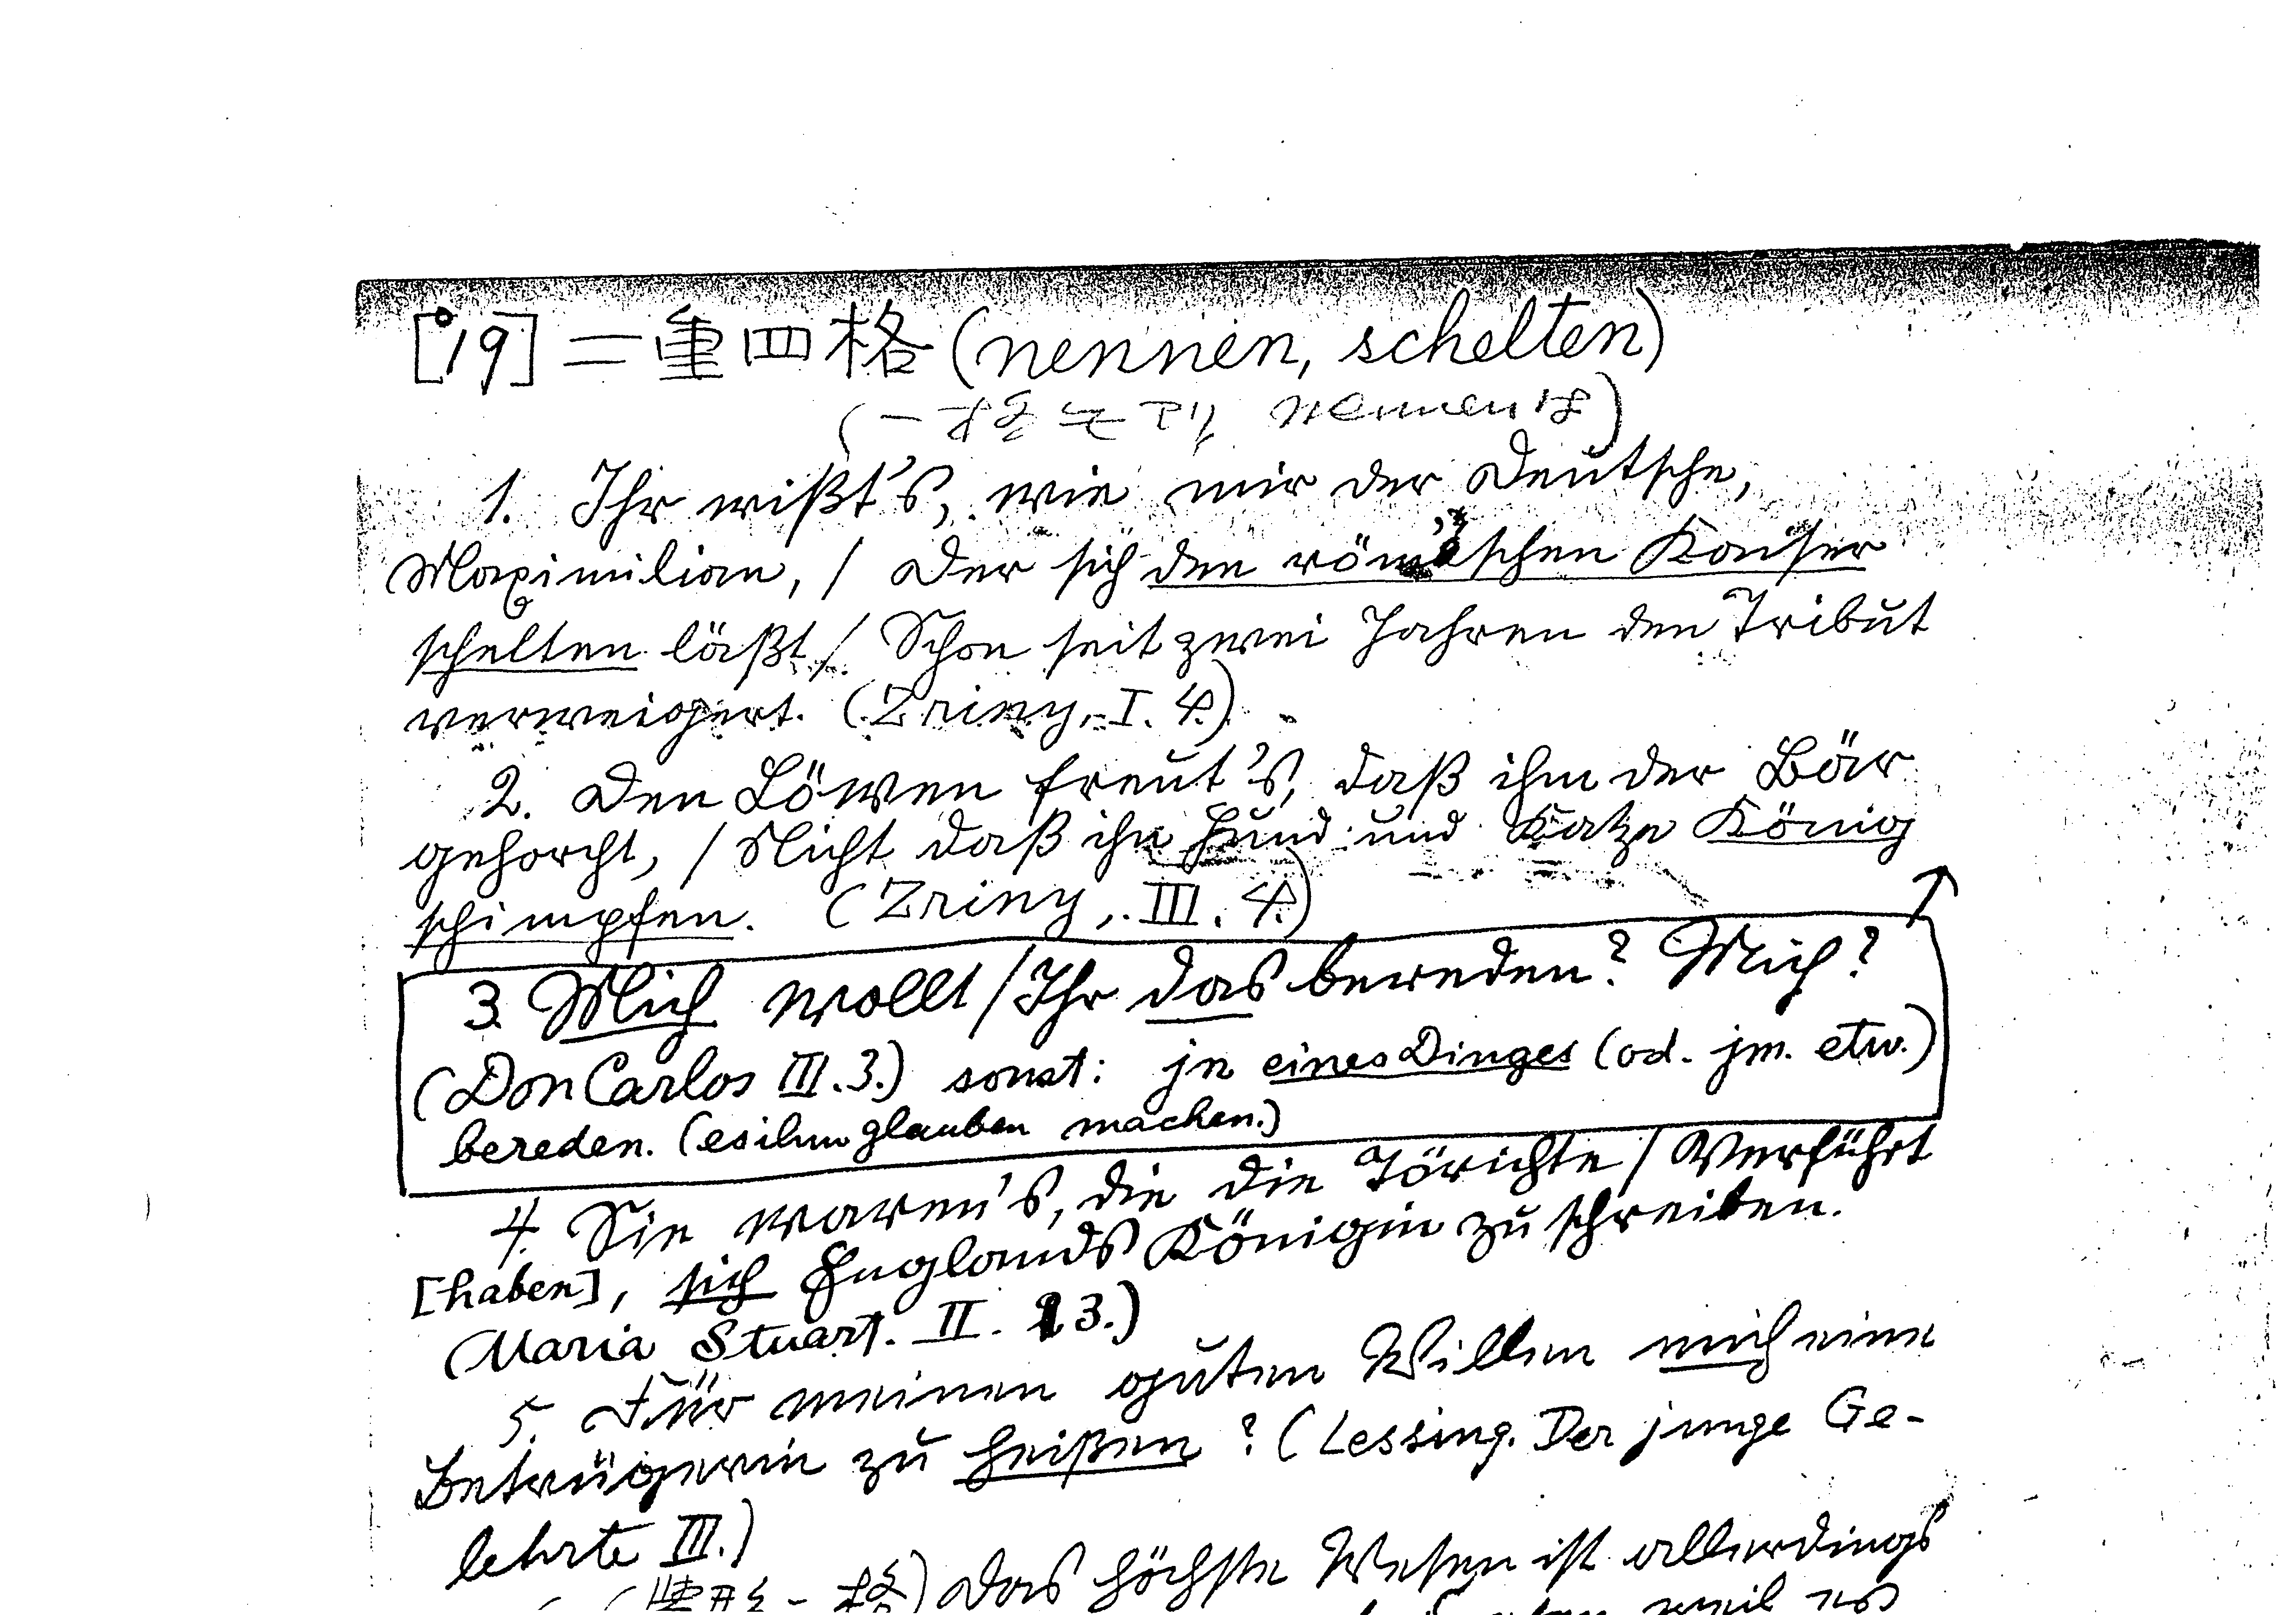 [°19] 二重四格 (nennen, schelten)
(一格モアリ nennenは)
1. Ihr wißt's, wie mir der Deutsche,
Maximilian, / Der sich den römischen Kaiser
schelten läßt / Schon seit zwei Jahren den Tribut
verweigert. (Zriny, I. 4.)
2. Den Löwen freut's, daß ihm der Bär
gehorcht, / Nicht daß ihn Hund und Katze König
schimpfen. (Zriny, III. 4.)
3. Mich wollt / Ihr das bereden? Mich?
(Don Carlos III. 3.) sonst: jn eines Dinges (od. jm. etw.)
bereden. (es ihm glauben machen.)
4. Sie waren's, die die Törichte / Verführt
[haben], sich Englands Königin zu schreiben.
(Maria Stuart. II. 3.)
5. Für meinen guten Willen mich eine
Betrügerin zu heißen? (Lessing. Der junge Ge-
lehrte III.)
Das höchste Wesen ist allerdings
weil es